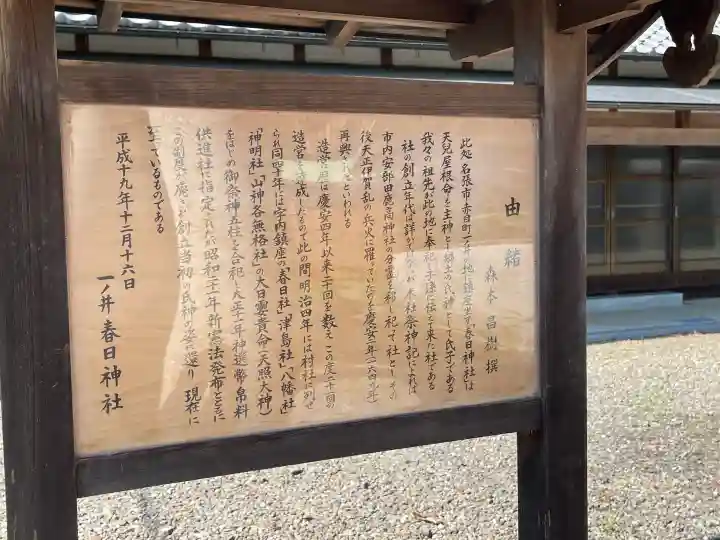 由緒
森本昌樹 撰
此処名張市赤目町一ノ井の地に鎮座坐す春日神社は
天児屋根命を主神とし郷土の氏神として氏子である
我々の祖先が此の地に奉祀し子孫に伝えて来た社である
社の創立年代は詳かでないが本社祭神記によれば
市内安部田鹿高神社の分霊を祀り
後天正伊賀乱の兵火に罹っていたのを慶安二年(一六四九年)
再興されたといわれる
造営歴は慶安四年以来二十回を数え この度二十一回の
造営を達成したもので此の間明治四年には村社に列せ
られ同四十年には字内鎮座の「春日社」「津島社」「八幡社」
「神明社」「山神各無格社」の大日孁貴命(天照大神)
をはじめ御祭神五柱を合祀し大正十一年神選幣帛料
供進社に指定されたが昭和二十一年新憲法発布とともに
この制度を廃され創立当初の氏神の姿に還り 現在に
至っているものである
平成十九年十二月十六日
一ノ井 春日神社